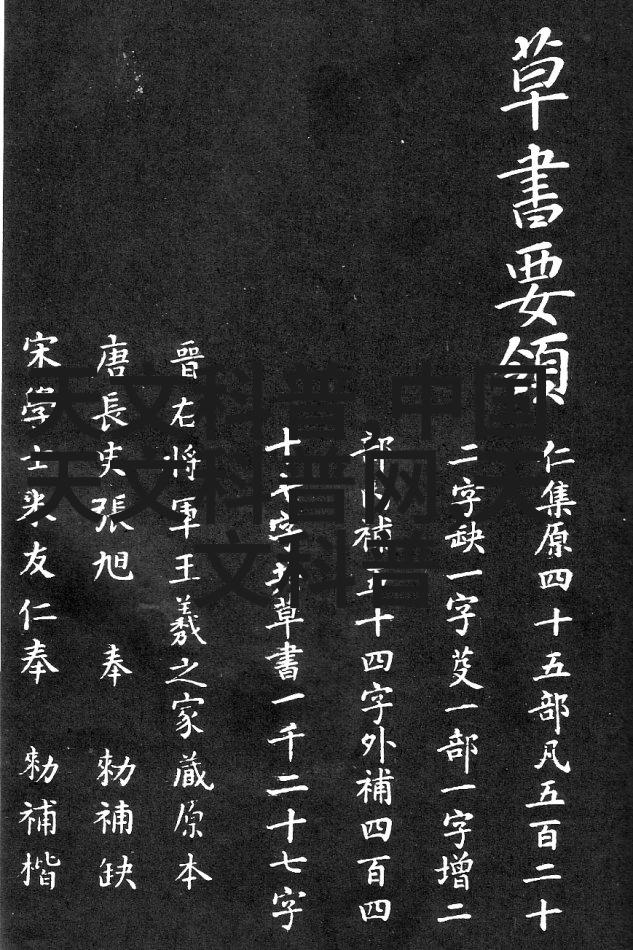 草書要領
仁集原四十五部凡五百二十
二字缺一字芟一部一字增二
部內補五十四字外補四百四
十字共草書一千二十七字
晉右將軍王羲之家藏原本
唐長史張旭 奉 勅補缺
宋學士米友仁奉 勅補楷
天文科普 中国
天文科普网 天
文科普